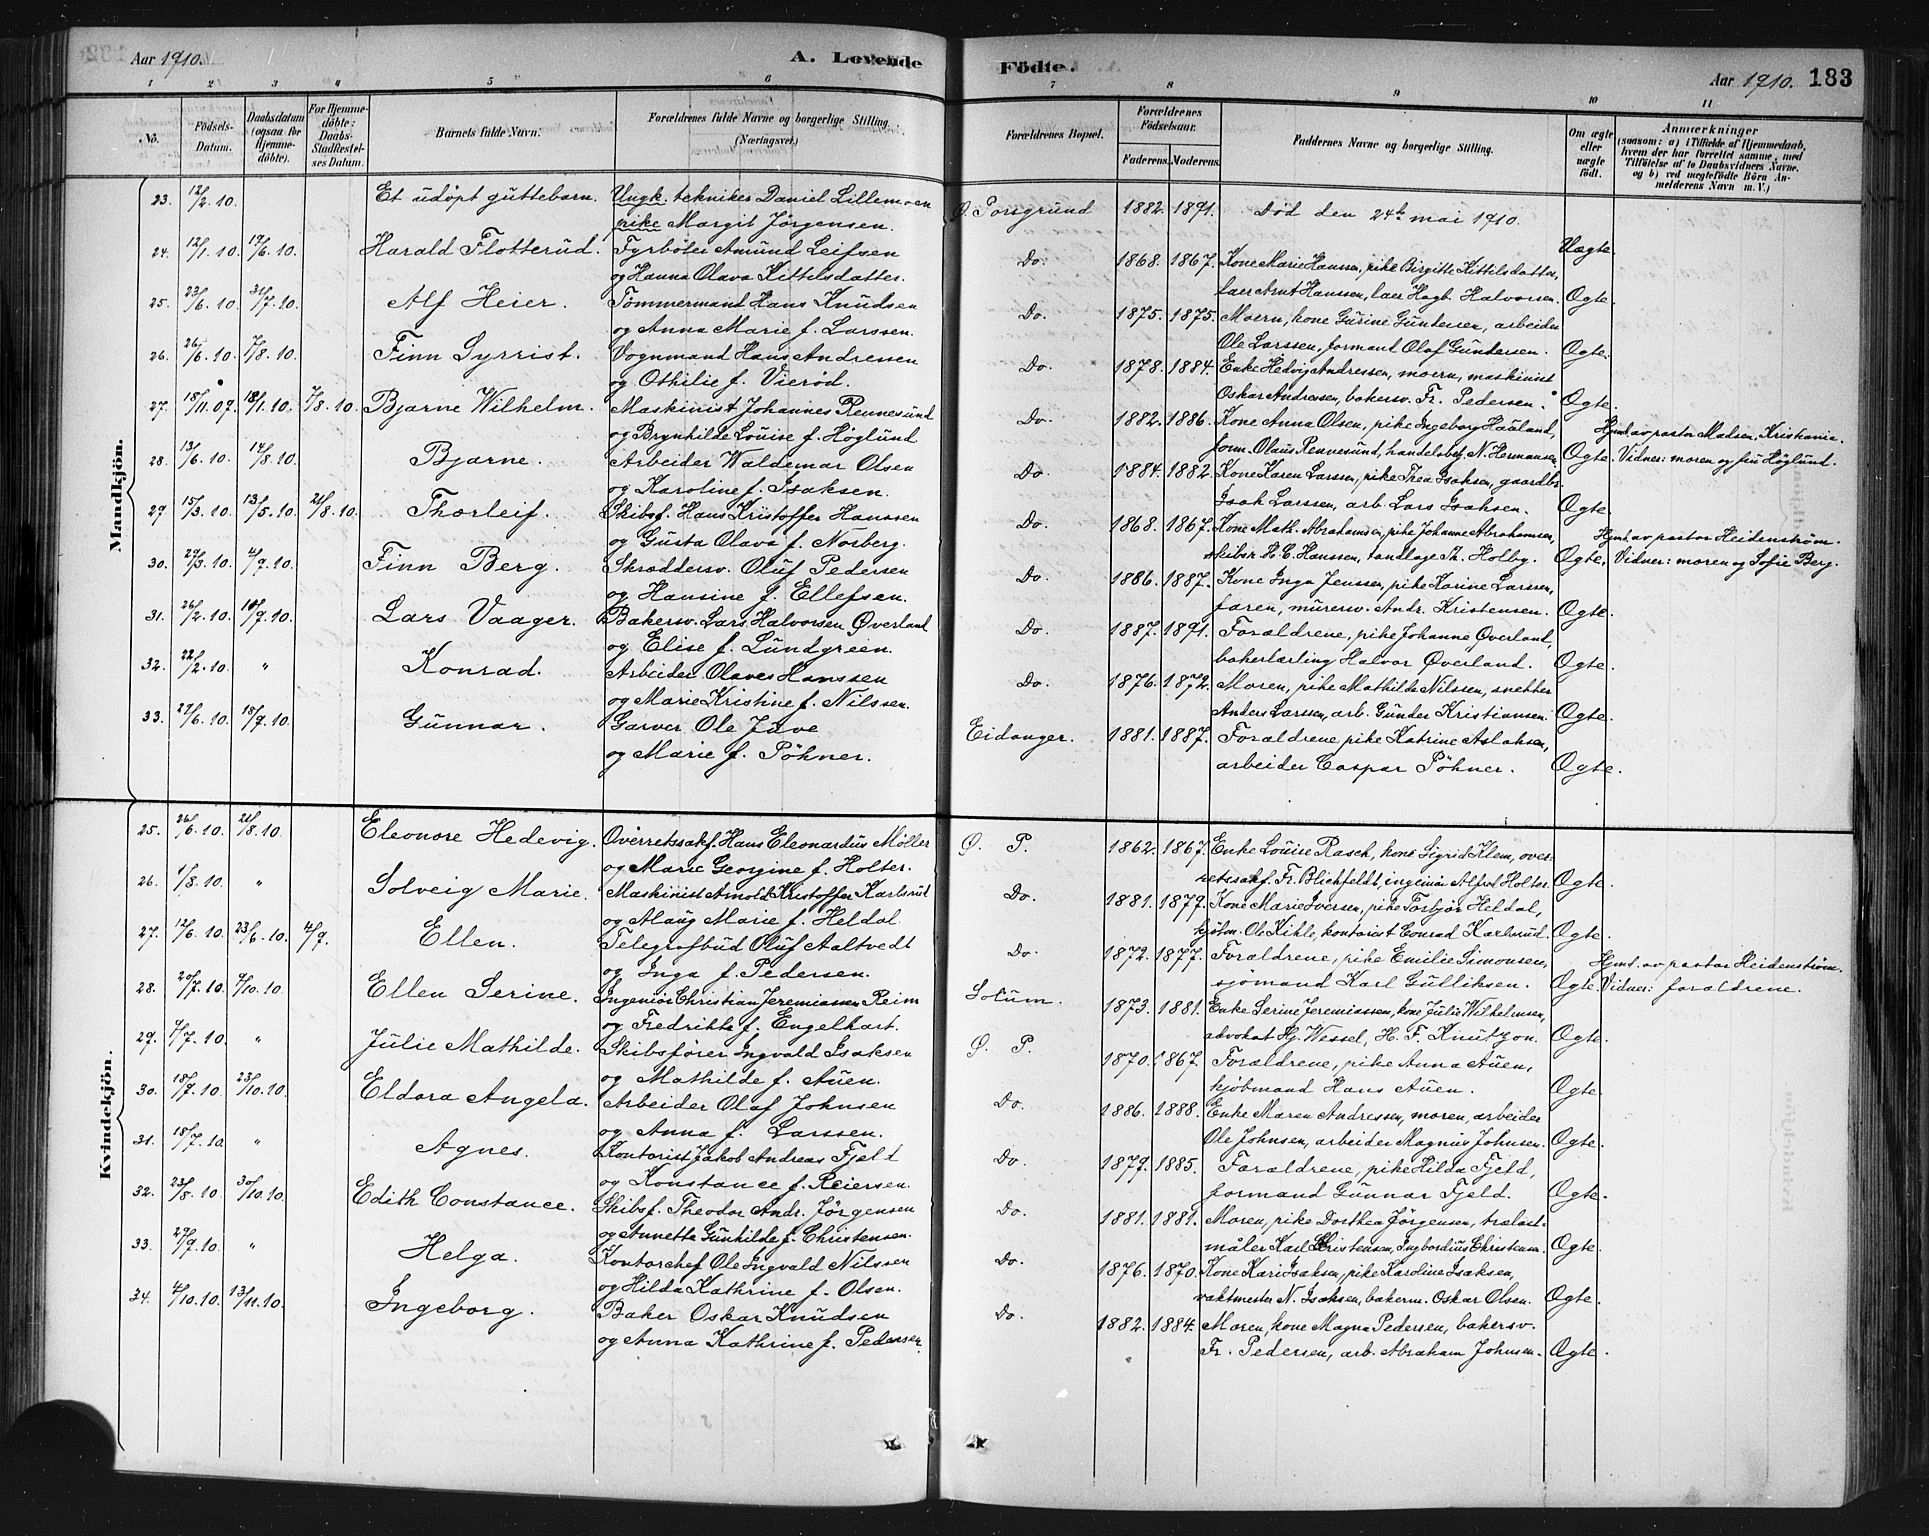 Aar 1910.
A. Levende
Födte.
Aar 1910. 183
1 2 3 4 5 6 7 8 9 10 11
No.
Födsels-Datum.
Daabsdatum (ogsaa for Hjemmedöbte).
For Hjemmedöbte: Daabs-Stadfæstelses Datum.
Barnets fulde Navn.
Forældrenes fulde Navne og borgerlige Stilling. (Næringsvei.)
Forældrenes Bopæl.
Forældrenes Födselsaar.
Faderens. Moderens.
Faddernes Navne og borgerlige Stilling.
Om ægte eller uægte födt.
Anmærkninger
(saasom: a) i Tilfælde af Hjemmedaab, hvem der har forrettet samme, med Tilföielse af to Daabsvidners Navne, og b) ved uægtefödte Börn Anmelderens Navn m. V.)
Mandkjön.
23. 12/2. 10. Et udöpt guttebarn. Ungk. tekniker Daniel Lillemoen Ø. Porsgrund 1882. 1891. Död den 24de mai 1910.
pike Margit Jörgensen. Uægte
24. 12/1. 10. 19/6. 10. Harald Flotterud. Fyrböter Amund Leifsen Do. 1868. 1867. Kone Marie Hanssen, pike Birgitte Kittilsdatter,
og Hanna Olava Kittelsdatter. laer Arnt Hanssen, laer Hagb. Halvorsen. Ogte.
25. 23/6. 10. 31/7. 10. Alf Heier. Tömmermand Hans Knudsen Do. 1875. 1875. Moern, kone Gurine Gundersen, arbeider
og Anna Marie f. Larssen. Ole Larssen, formand Olaf Gundersen. Ogte.
26. 26/6. 10. 7/8. 10. Finn Syrrist. Vognmand Hans Andressen Do. 1878. 1884. Enke Hedvig Andressen, moern, maskinist
og Othilie f. Vieröd. Oskar Andressen, bakersv. Fr. Pedersen. Ogte.
27. 18/11. 09. 18/1. 10. 7/8. 10. Bjarne Wilhelm. Maskinist Johannes Rennesund Do. 1882. 1886. Kone Anna Olsen, pike Ingeborg Haaland, Hjmt. av pastor Madsen, Kristiania.
og Brynhilde Louise f. Höglund fom. Olaus Rennesund, handelsbef. N. Hermansen Ogte. Vidner: moren og fru Höglund.
28. 13/6. 10. 14/8. 10. Bjarne. Arbeider Waldemar Olsen Do. 1884. 1882. Kone Karen Larssen, pike Thea Isaksen, gaardbr.
og Karoline f. Isaksen. Isak Larssen, arb. Lars Isaksen. Ogte.
29. 15/3. 10. 13/5. 10. 21/8. 10. Thorleif. Skibsf. Hans Kristoffer Hanssen Do. 1868. 1867. Kone Math. Abrahamsen, pike Johanne Abrahamsen, Hjmt. av pastor Heidenström.
og Gusta Olava f. Norberg. skibsr. H. C. Hanssen, tandlage Th. Holby. Ogte. Vidner: moren og Sofie Berg.
30. 29/3. 10. 4/9. 10. Finn Berg. Skræddersv. Oluf Pedersen Do. 1886. 1887. Kone Inga Jenssen, pike Karine Larssen,
og Hansine f. Ellefsen. faren, murersv. Andr. Kristensen. Ogte.
31. 26/2. 10. 18/9. 10. Lars Vaager. Bakersv. Lars Halvorsen Øverland Do. 1887. 1891. Forældrene, pike Johanne Øverland,
og Elise f. Lundgreen. bakerlærling Halvor Øverland. Ogte.
32. 22/2. 10. " Konrad. Arbeider Olaves Hanssen Do. 1876. 1872. Moren, pike Mathilde Nilssen, snekker
og Marie Kristine f. Nilssen. Anders Larssen, arb. Gunder Kristiansen. Ogte.
33. 29/6. 10. 18/9. 10. Gunnar. Garver Ole Juve Eidanger. 1881. 1887. Forældrene pike Katrine Aslaksen,
og Marie f. Pöhner. arbeider Caspar Pöhner. Ogte.
Kvindekjön.
25. 26/6. 10. 21/8. 10. Eleonore Hedevig. Overretssakf. Hans Eleonardus Möller Ø. P. 1862. 1867. Enke Louise Rasch, kone Sigrid Klem, over-
og Marie Georgine f. Holter. retssakf. Fr. Blichfeldt, ingeniör Alfred Holter. Ogte.
26. 1/8. 10. " Solveig Marie. Maskinist Arnold Kristoffer Karlsrud Do. 1881. 1879. Kone Marie Iversen, pike Torbjör Heldal,
og Alaug Marie f. Heldal kjöbm. Ole Kihle, kontorist Conrad Karlsrud. Ogte.
27. 12/6. 10. 23/6. 10. 4/9. Ellen. Telegrafbud Oluf Aaltvedt Do. 1872. 1877. Forældrene, pike Emilie Simonsen, Hjmt. av pastor Heidenström.
og Inga f. Pedersen. sjömand Karl Gulliksen. Ogte. Vidner: forældrene.
28. 20/7. 10. 9/10. 10. Ellen Serine. Ingeniör Christian Jeremiassen Reim Solum. 1873. 1881. Enke Serine Jeremiassen, kone Julie Wilhelmsen,
og Fredrikke f. Engelhart. advokat Hj. Wessel, H. F. Knutzon. Ogte.
29. 9/7. 10. " Julie Mathilde. Skibsförer Ingvald Isaksen Ø. P. 1870. 1867. Forældrene, pike Anna Auen,
og Mathilde f. Auen. kjöbmand Hans Auen. Ogte.
30. 18/9. 10. 23/10. 10. Eldora Angela. Arbeider Olaf Johnsen Do. 1886. 1888. Enke Maren Andressen, moren, arbeider
og Anna f. Larssen. Ole Johnsen, arbeider Magnus Johnsen. Ogte.
31. 18/7. 10. " Agnes. Kontorist Jakob Andreas Fjeld Do. 1879. 1885. Forældrene, pike Hilda Fjeld,
og Konstance f. Reiersen. formand Gunnar Fjeld. Ogte.
32. 23/8. 10. 30/10. 10. Edith Constance. Skibsf. Theodor Andr. Jörgensen Do. 1881. 1881. Moren, pike Dorthea Jörgensen, trælast-
og Annette Gunhilde f. Christensen. måler Karl Christensen, Ingbordius Christensen. Ogte.
33. 29/9. 10. " Helga. Kontorchef Ole Ingvald Nilssen Do. 1876. 1870. Kone Kari Isaksen, pike Karoline Isaksen,
og Hilda Kathrine f. Olsen. vaktmester N. Isaksen, bakerm. Oskar Olsen. Ogte.
34. 4/10. 10. 13/11. 10. Ingeborg. Baker Oskar Knudsen Do. 1882. 1884. Moren, kone Magna Pedersen, bakersv.
og Anna Kathrine f. Pedersen Fr. Pedersen, arb. Abraham Johnsen. Ogte.